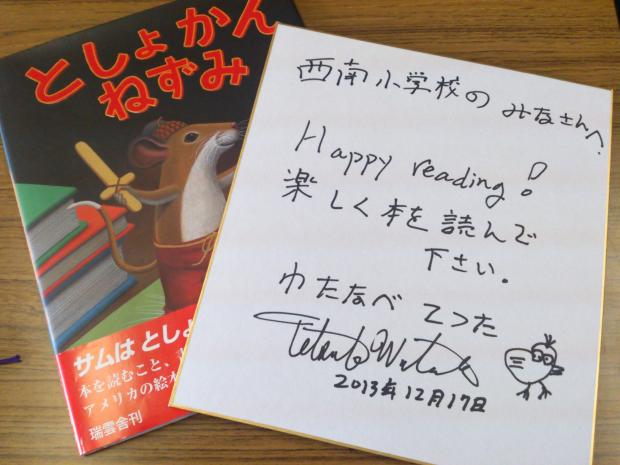 としょかん
ねずみ
サムは としょ
本を読むこと、
アメリカの絵本
瑞雲舎刊
西南小学校の みなさんへ
Happy reading!
楽しく本を読んで
下さい.
わたなべ てつた
2013年12月17日